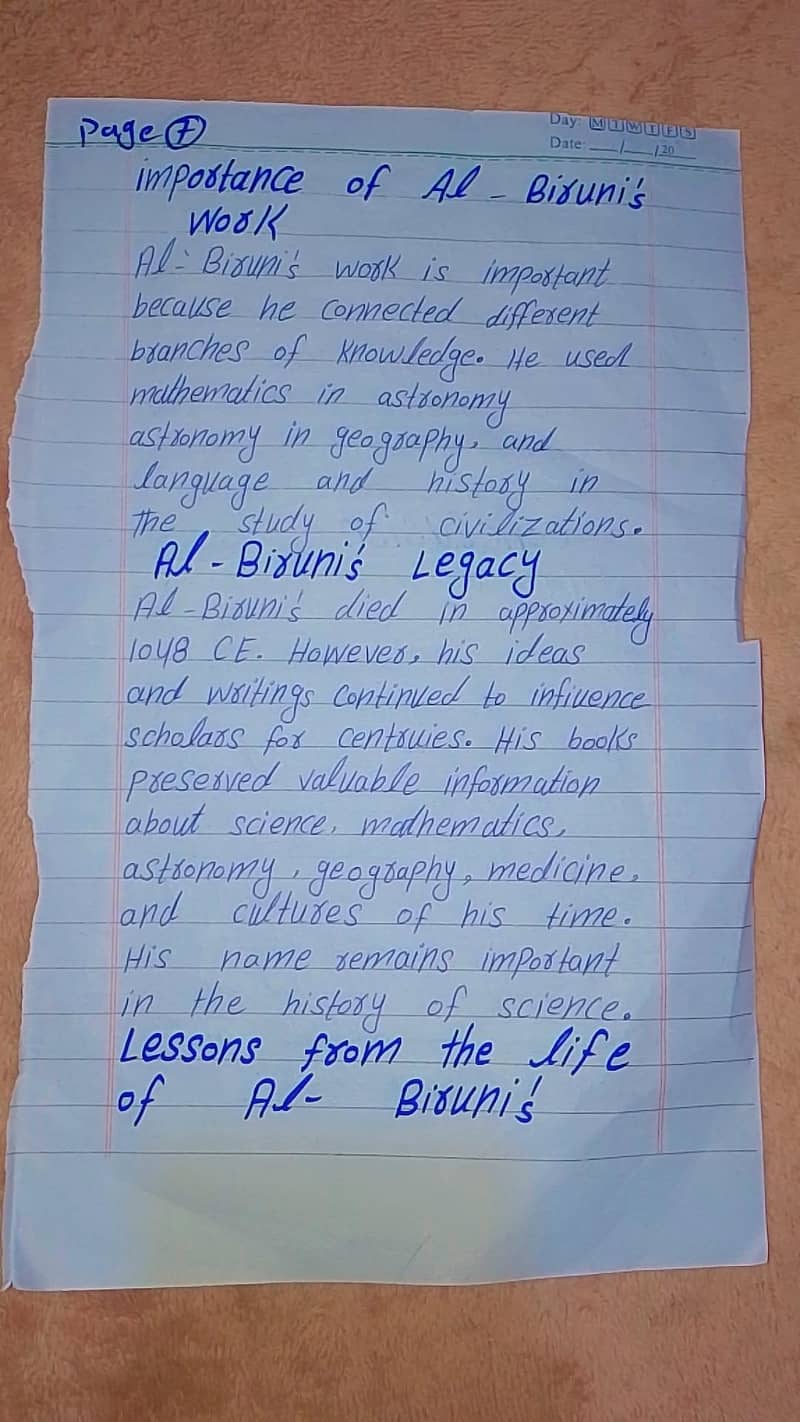 Page 7
Day: M T W T F S
Date: __/__/20__
importance of Al - Biruni's
Work
Al - Biruni's work is important
because he connected different
branches of knowledge. He used
mathematics in astronomy
astronomy in geography, and
language and history in
the study of civilizations.
Al - Biruni's Legacy
Al - Biruni's died in approximately
1048 CE. However, his ideas
and writings continued to infiuence
scholars for centruies. His books
preserved valuable information
about science, mathematics,
astronomy, geography, medicine,
and cultures of his time.
His name remains important
in the history of science.
Lessons from the life
of Al- Biruni's